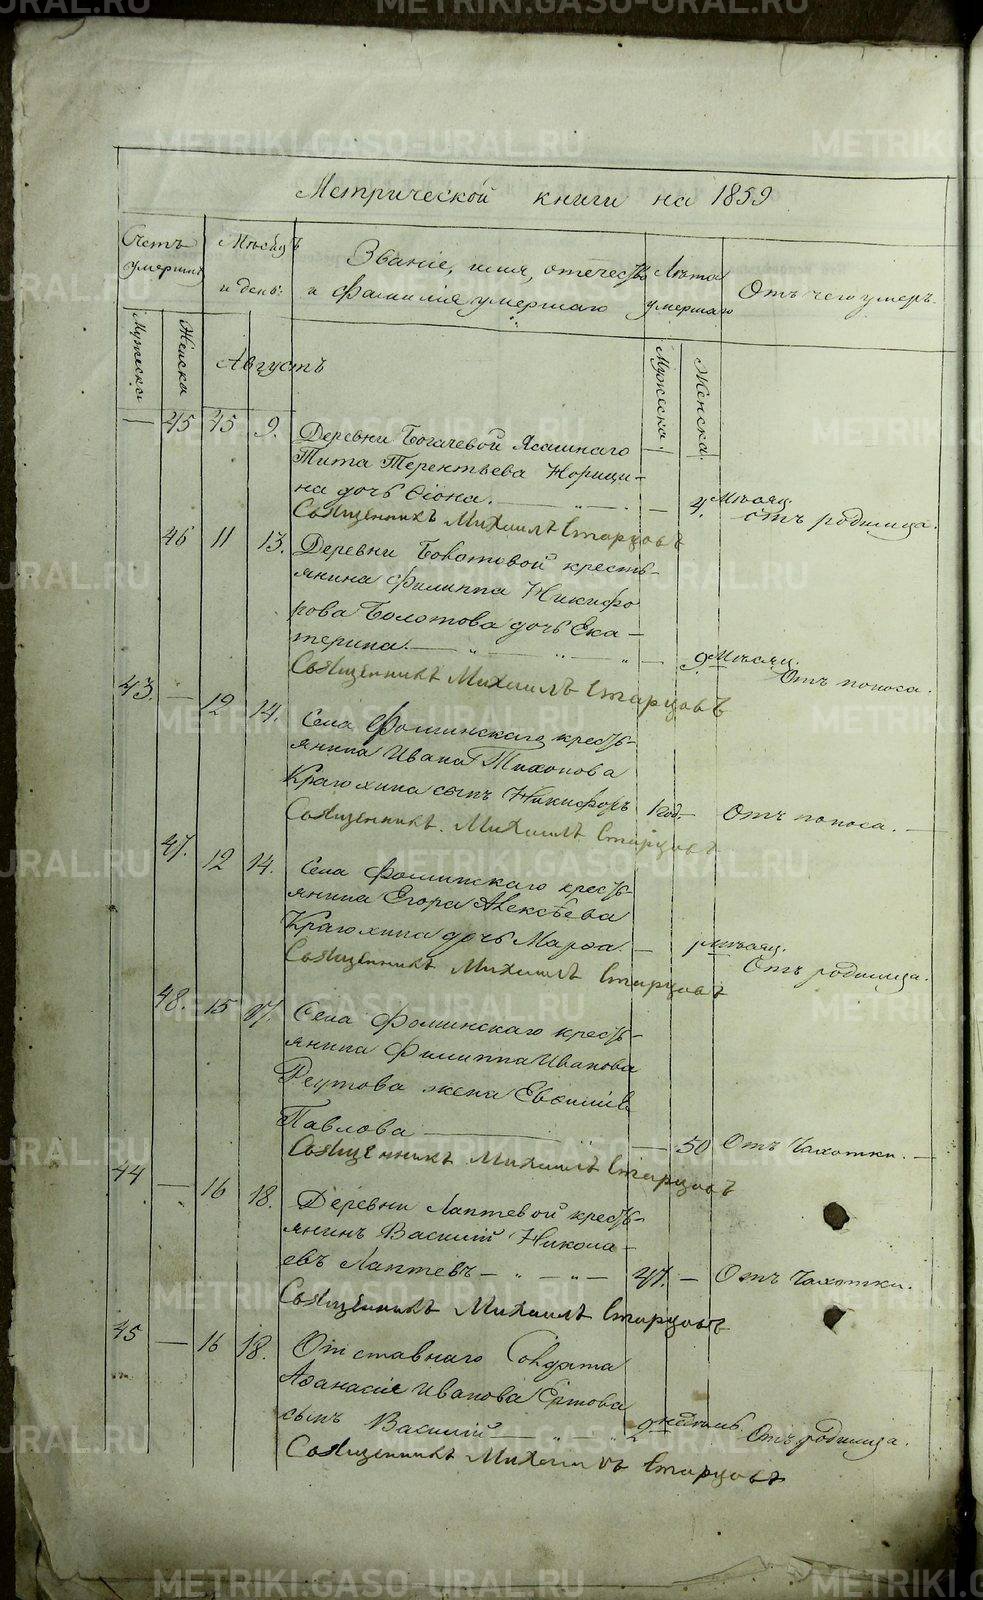 METRIKI.GASO-URAL.RU
Метрической книги на 1859
Счетъ умершихъ
Мѣсяцъ и день:
Званіе, имя, отечество и фамилія умершаго
Лѣта умершаго
Отъ чего умеръ.
Мужеска
Женска
Августъ
Мужеска.
Женска.
— 45 45 9. Деревни Богачевой Ясашнаго
Тита Терентьева Норици-
на дочь — 4. Мѣсяц. отъ родимца.
Священникъ Михаилъ Старцовъ
46 11 13. Деревни крестъ-
янина Филиппа Никифо
рова Болотова дочь Ека-
терина. — 9 Мѣсяц. Отъ поноса.
Священникъ Михаилъ Старцовъ
43. — 12 14. Села Фоминскаго кресть-
янина Ивана Тихонова
Крагюхина сынъ Никифоръ 1 год. — Отъ поноса. —
Священникъ. Михаилъ Старцовъ
47. 12 14. Села Фоминскаго кресть-
янина Егора Алексѣева
Крагюхина дочь Марѳа. — мѣсяц. Отъ родимца.
Священникъ Михаилъ Старцовъ
48. 15 17. Села Фоминскаго кресть-
янина Филиппа Иванова
Реутова жена
Павлова — 50 Отъ Чахотки. —
Священникъ Михаилъ Старцовъ
44 — 16 18. Деревни Лаптевой кресть-
янинъ Василій Никола-
евъ Лаптевъ — 47. — Отъ Чахотки.
Священникъ Михаилъ Старцовъ
45 — 16 18. Отставнаго Солдата
Аѳанасіе Иванова
сынъ Василій 2 недѣль Отъ родимца.
Священникъ Михаилъ Старцовъ